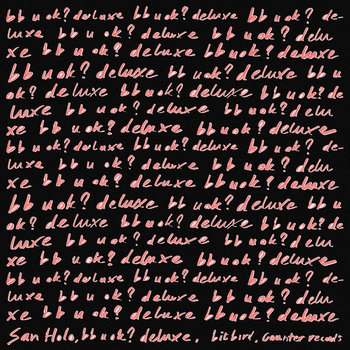 bb u ok? deluxe bb u ok? deluxe bb u ok? de-
luxe bb u ok? deluxe bb u ok? delu
xe bb u ok? deluxe bb u ok? deluxe
bb u ok? deluxe bb u ok? deluxe bb u
ok? deluxe bb u ok? deluxe bb u ok? de
luxe bb u ok? deluxe bb u ok? delu
xe bb u ok? deluxe bb u ok? deluxe
bb u ok? deluxe bb u ok? deluxe bb u ok? de-
luxe bb u ok? deluxe bb u ok? delu
xe bb u ok? deluxe bb u ok? deluxe
bb u ok? deluxe bb u ok? deluxe bb u
ok? deluxe bb u ok? deluxe bb u ok? de
luxe bb u ok? deluxe bb u ok? delu
xe bb u ok? deluxe bb u ok? deluxe
bb u ok? deluxe bb u ok? deluxe bb u ok? de-
luxe bb u ok? deluxe bb u ok? delu
xe bb u ok? deluxe bb u ok? deluxe
San Holo, bb u ok? deluxe. bitbird, counter records